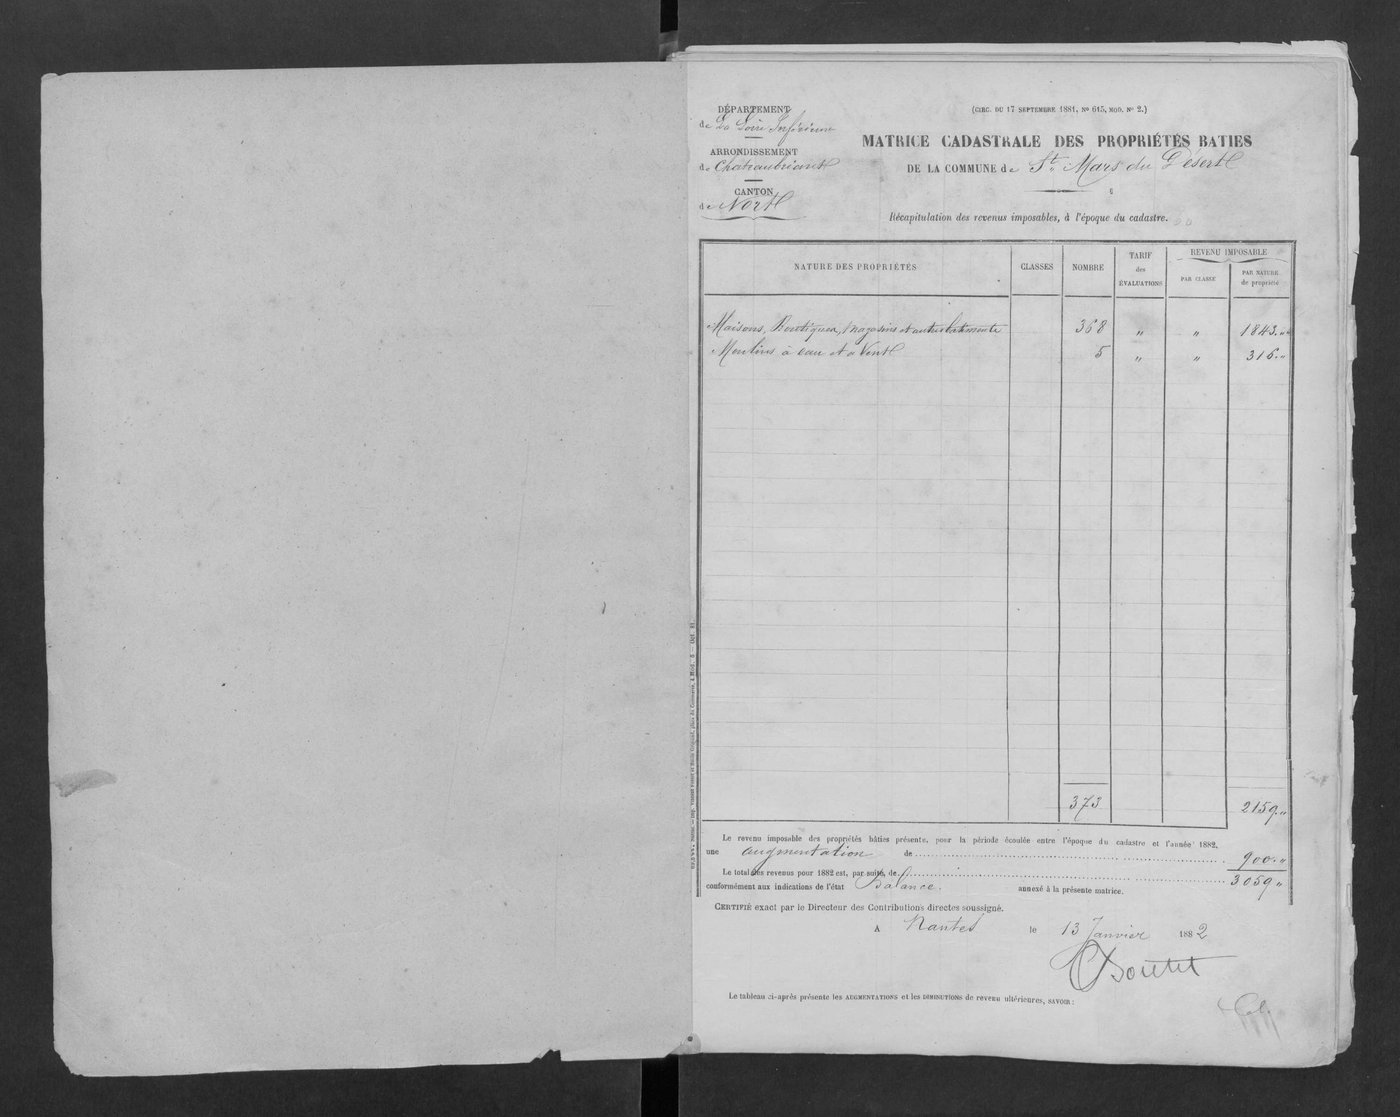 DÉPARTEMENT
de La Loire Inférieure
ARRONDISSEMENT
de Chateaubriant
CANTON
de Nort
(CIRC. DU 17 SEPTEMBRE 1881, No 615, MOD. No 2.)
MATRICE CADASTRALE DES PROPRIÉTÉS BATIES
DE LA COMMUNE de St Mars du Désert
Récapitulation des revenus imposables, à l'époque du cadastre.
NATURE DES PROPRIÉTÉS CLASSES NOMBRE TARIF des ÉVALUATIONS REVENU IMPOSABLE PAR CLASSE PAR NATURE de propriété
Maisons, Boutiques, Magasins et autres batiments 368 " " 1843. "
Moulins à eau et à Vent 5 " " 316. "
373 2159. "
Le revenu imposable des propriétés bâties présente, pour la période écoulée entre l'époque du cadastre et l'année 1882,
une augmentation de 900. "
Le total des revenus pour 1882 est, par suite, de 3059 "
conformément aux indications de l'état Balance annexé à la présente matrice.
CERTIFIÉ exact par le Directeur des Contributions directes soussigné.
A Nantes le 13 Janvier 1882
Le tableau ci-après présente les AUGMENTATIONS et les DIMINUTIONS de revenu ultérieures, SAVOIR :